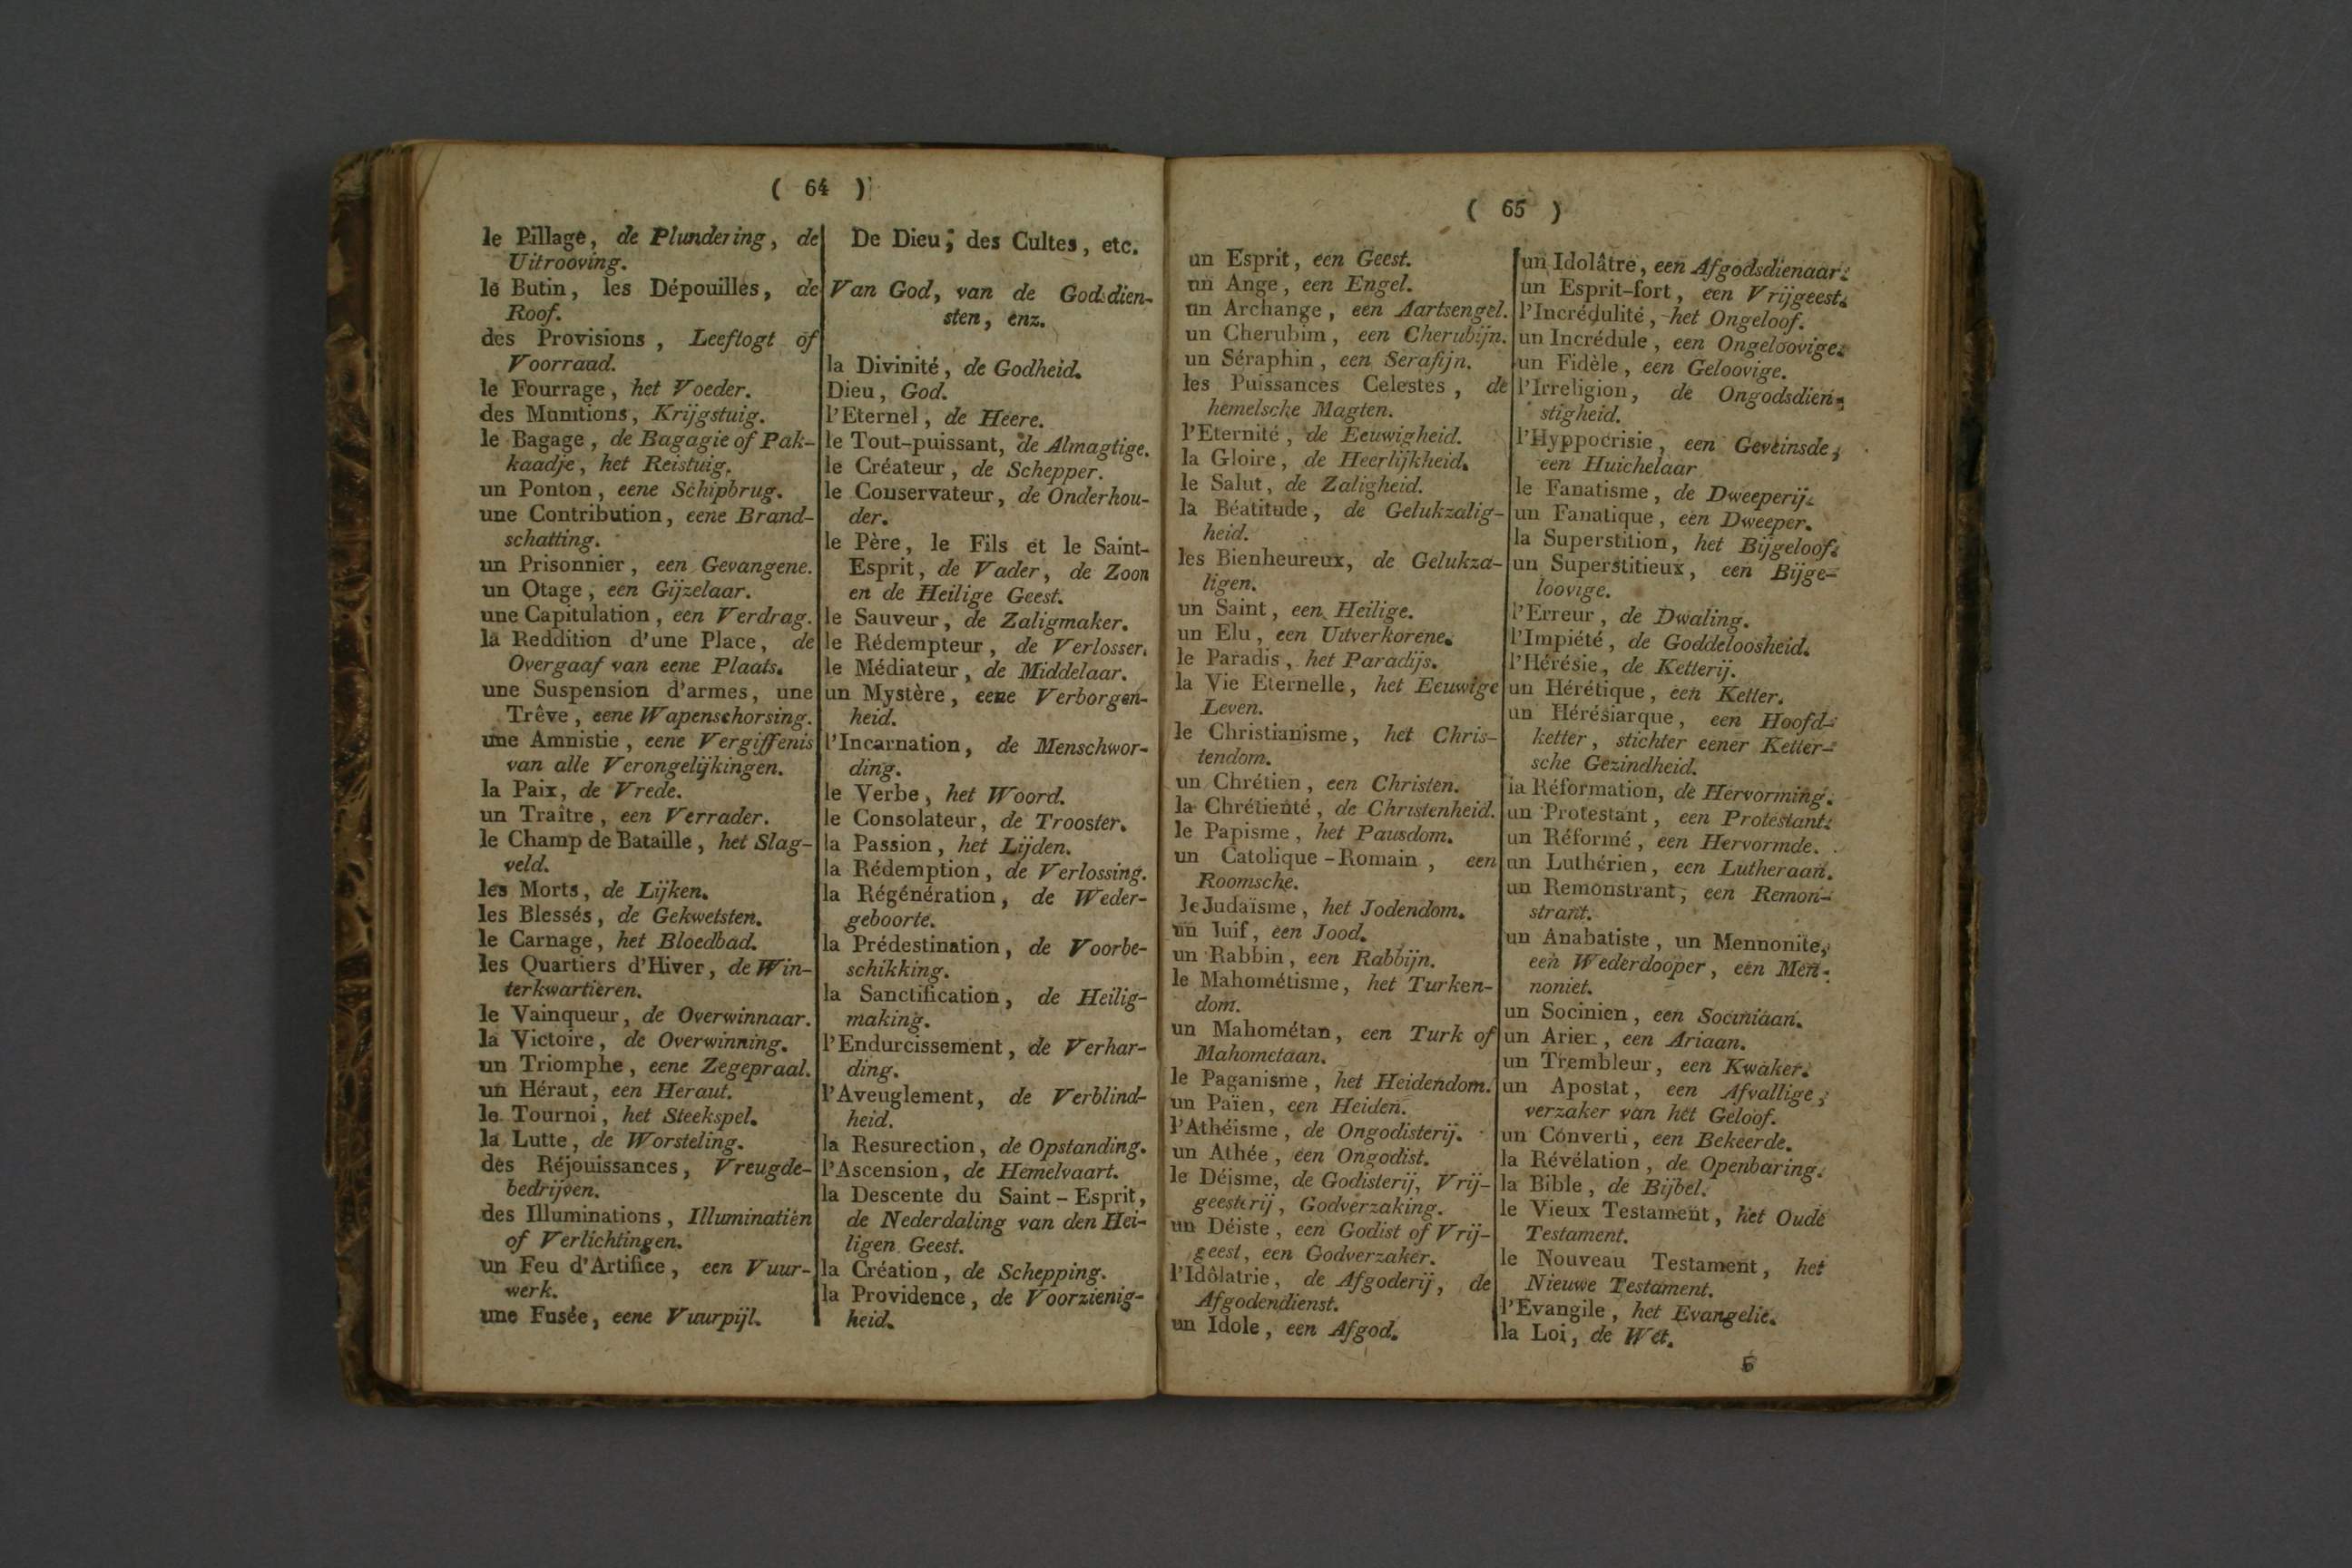 ( 64 )
le Pillage, de Plundering, de
Uitrooving.
le Butin, les Dépouilles, de
Roof.
des Provisions, Leeftogt of
Voorraad.
le Fourrage, het Voeder.
des Munitions, Krijgstuig.
le Bagage, de Bagagie of Pak-
kaadje, het Reistuig.
un Ponton, eene Schipbrug.
une Contribution, eene Brand-
schatting.
un Prisonnier, een Gevangene.
un Otage, een Gijzelaar.
une Capitulation, een Verdrag.
la Reddition d'une Place, de
Overgaaf van eene Plaats.
une Suspension d'armes, une
Trêve, eene Wapenschorsing.
une Amnistie, eene Vergiffenis
van alle Verongelijkingen.
la Paix, de Vrede.
un Traître, een Verrader.
le Champ de Bataille, het Slag-
veld.
les Morts, de Lijken.
les Blessés, de Gekwetsten.
le Carnage, het Bloedbad.
les Quartiers d'Hiver, de Win-
terkwartieren.
le Vainqueur, de Overwinnaar.
la Victoire, de Overwinning.
un Triomphe, eene Zegepraal.
un Héraut, een Heraut.
le Tournoi, het Steekspel.
la Lutte, de Worsteling.
des Réjouissances, Vreugde-
bedrijven.
des Illuminations, Illuminatiën
of Verlichtingen.
un Feu d'Artifice, een Vuur-
werk.
une Fusée, eene Vuurpijl.
De Dieu; des Cultes, etc.
Van God, van de Godsdien-
sten, enz.
la Divinité, de Godheid.
Dieu, God.
l'Eternel, de Heere.
le Tout-puissant, de Almagtige.
le Créateur, de Schepper.
le Conservateur, de Onderhou-
der.
le Père, le Fils et le Saint-
Esprit, de Vader, de Zoon
en de Heilige Geest.
le Sauveur, de Zaligmaker.
le Rédempteur, de Verlosser.
le Médiateur, de Middelaar.
un Mystère, eene Verborgen-
heid.
l'Incarnation, de Menschwor-
ding.
le Verbe, het Woord.
le Consolateur, de Trooster.
la Passion, het Lijden.
la Rédemption, de Verlossing.
la Régénération, de Weder-
geboorte.
la Prédestination, de Voorbe-
schikking.
la Sanctification, de Heilig-
making.
l'Endurcissement, de Verhar-
ding.
l'Aveuglement, de Verblind-
heid.
la Resurection, de Opstanding.
l'Ascension, de Hemelvaart.
la Descente du Saint-Esprit,
de Nederdaling van den Hei-
ligen Geest.
la Création, de Schepping.
la Providence, de Voorzienig-
heid.
( 65 )
un Esprit, een Geest.
un Ange, een Engel.
un Archange, een Aartsengel.
un Cherubim, een Cherubijn.
un Séraphin, een Serafijn.
les Puissances Celestes, de
hemelsche Magten.
l'Eternité, de Eeuwigheid.
la Gloire, de Heerlijkheid.
le Salut, de Zaligheid.
la Béatitude, de Gelukzalig-
heid.
les Bienheureux, de Gelukza-
ligen.
un Saint, een Heilige.
un Elu, een Uitverkorene.
le Paradis, het Paradijs.
la Vie Eternelle, het Eeuwige
Leven.
le Christianisme, het Chris-
tendom.
un Chrétien, een Christen.
la Chrétienté, de Christenheid.
le Papisme, het Pausdom.
un Catolique-Romain, een
Roomsche.
le Judaïsme, het Jodendom.
un Juif, een Jood.
un Rabbin, een Rabbijn.
le Mahométisme, het Turken-
dom.
un Mahométan, een Turk of
Mahometaan.
le Paganisme, het Heidendom.
un Païen, een Heiden.
l'Athéisme, de Ongodisterij.
un Athée, een Ongodist.
le Déisme, de Godisterij, Vrij-
geesterij, Godverzaking.
un Déiste, een Godist of Vrij-
geest, een Godverzaker.
l'Idôlatrie, de Afgoderij, de
Afgodendienst.
un Idole, een Afgod.
un Idolâtre, een Afgodsdienaar.
un Esprit-fort, een Vrijgeest.
l'Incrédulité, het Ongeloof.
un Incrédule, een Ongeloovige.
un Fidèle, een Geloovige.
l'Irreligion, de Ongodsdien-
stigheid.
l'Hyppocrisie, een Geveinsde,
een Huichelaar
le Fanatisme, de Dweeperij.
un Fanatique, een Dweeper.
la Superstition, het Bijgeloof.
un Superstitieux, een Bijge-
loovige.
l'Erreur, de Dwaling.
l'Impiété, de Goddeloosheid.
l'Hérésie, de Ketterij.
un Hérétique, een Ketter.
un Hérésiarque, een Hoofd-
ketter, stichter eener Ketter-
sche Gezindheid.
la Réformation, de Hervorming.
un Protestant, een Protestant.
un Réformé, een Hervormde.
un Luthérien, een Lutheraan.
un Remonstrant, een Remon-
strant.
un Anabatiste, un Mennonite,
een Wederdooper, een Men-
noniet.
un Socinien, een Sociniaan.
un Arien, een Ariaan.
un Trembleur, een Kwaker.
un Apostat, een Afvallige,
verzaker van het Geloof.
un Converti, een Bekeerde.
la Révélation, de Openbaring.
la Bible, de Bijbel.
le Vieux Testament, het Oude
Testament.
le Nouveau Testament, het
Nieuwe Testament.
l'Evangile, het Evangelie.
la Loi, de Wet.